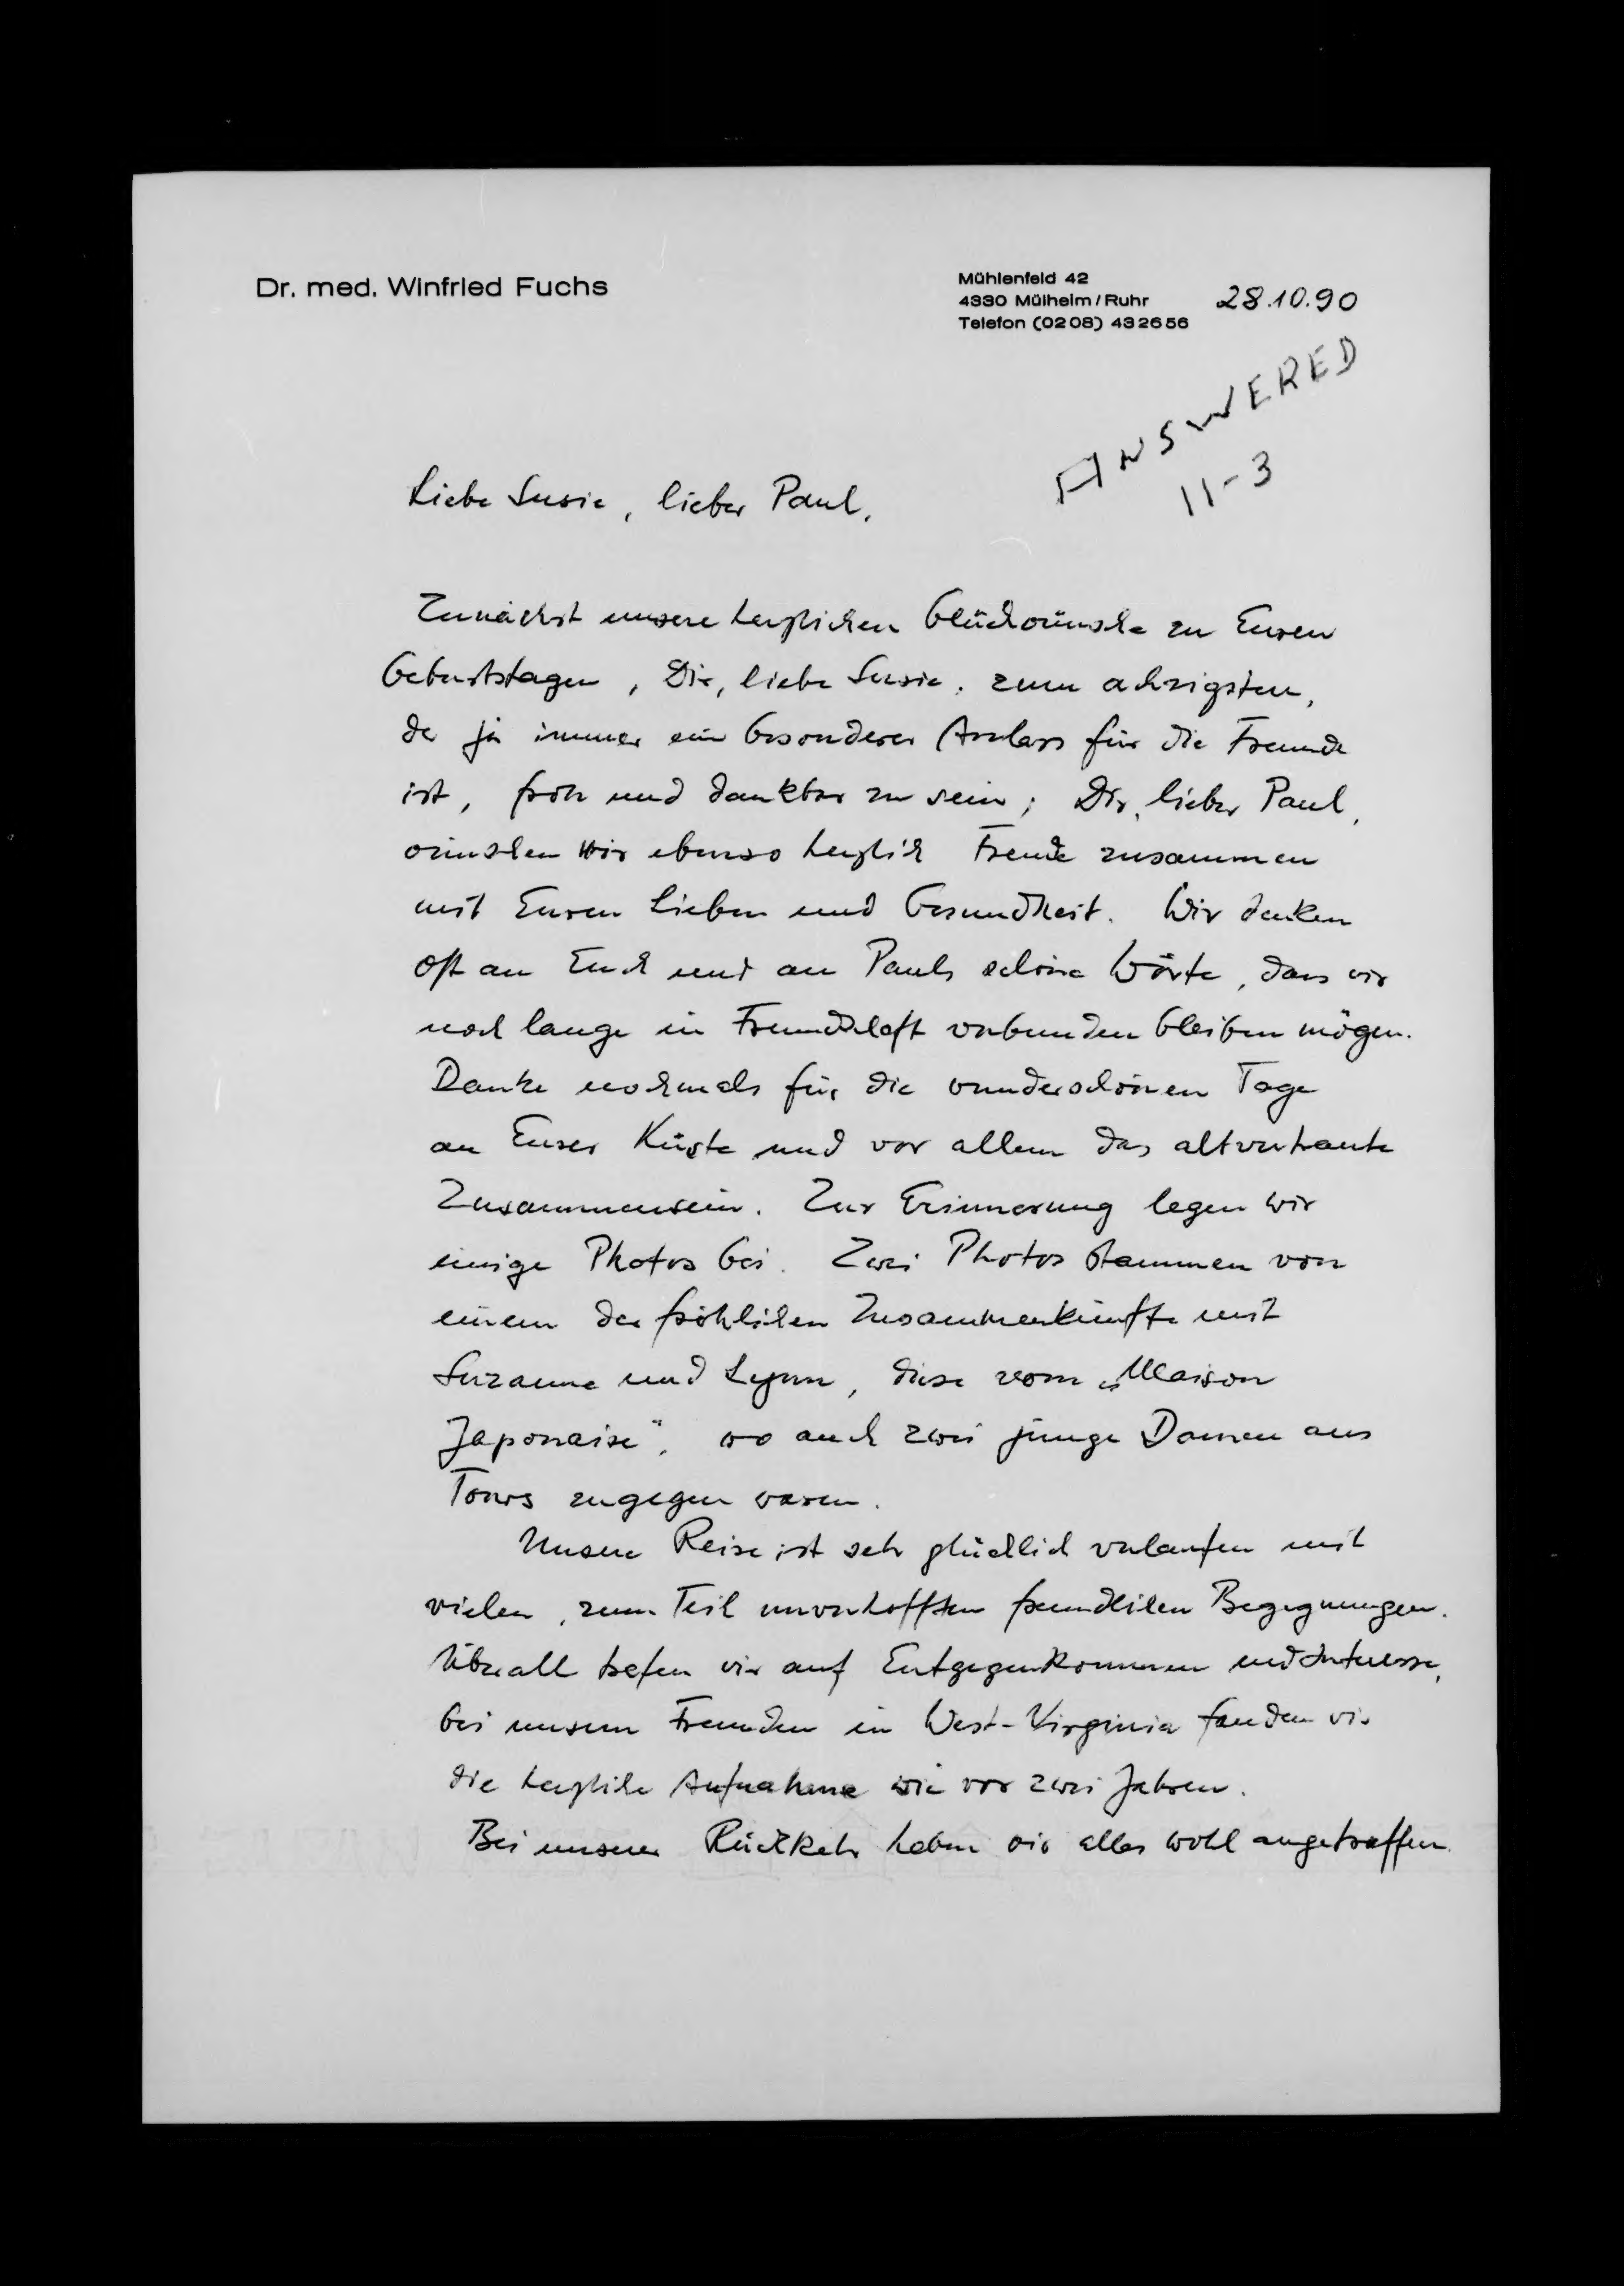 Dr. med. Winfried Fuchs
Mühlenfeld 42
4330 Mülheim/Ruhr
Telefon (0208) 432656
28.10.90
ANSWERED
11-3
Liebe Susie, lieber Paul,
Zunächst unsere herzlichen Glückwünsche zu Euren
Geburtstagen, Dir, liebe Susie, zum achzigsten,
der ja immer ein besonderer Anlass für die Freunde
ist, froh und dankbar zu sein; Dir, lieber Paul,
wünschen wir ebenso herzlich Freude zusammen
mit Euren Lieben und Gesundheit. Wir denken
oft an Euch und an Pauls schöne Worte, dass wir
noch lange in Freundschaft verbunden bleiben mögen.
Danke nochmals für die wunderschönen Tage
an Eurer Küste und vor allem das altvertraute
Zusammensein. Zur Erinnerung legen wir
einige Photos bei. Zwei Photos stammen von
einem der fröhlichen Zusammenkünfte mit
Suzanne und Lynn, diese vom „Maison
Japonaise", wo auch zwei junge Damen aus
Tours zugegen waren.
Unsere Reise ist sehr glücklich verlaufen mit
vielen, zum Teil unverhofften freundlichen Begegnungen.
Überall trafen wir auf Entgegenkommen und Interesse,
bei unseren Freunden in West-Virginia fanden wir
die herzliche Aufnahme wie vor zwei Jahren.
Bei unserer Rückkehr haben wir alles wohl angetroffen.